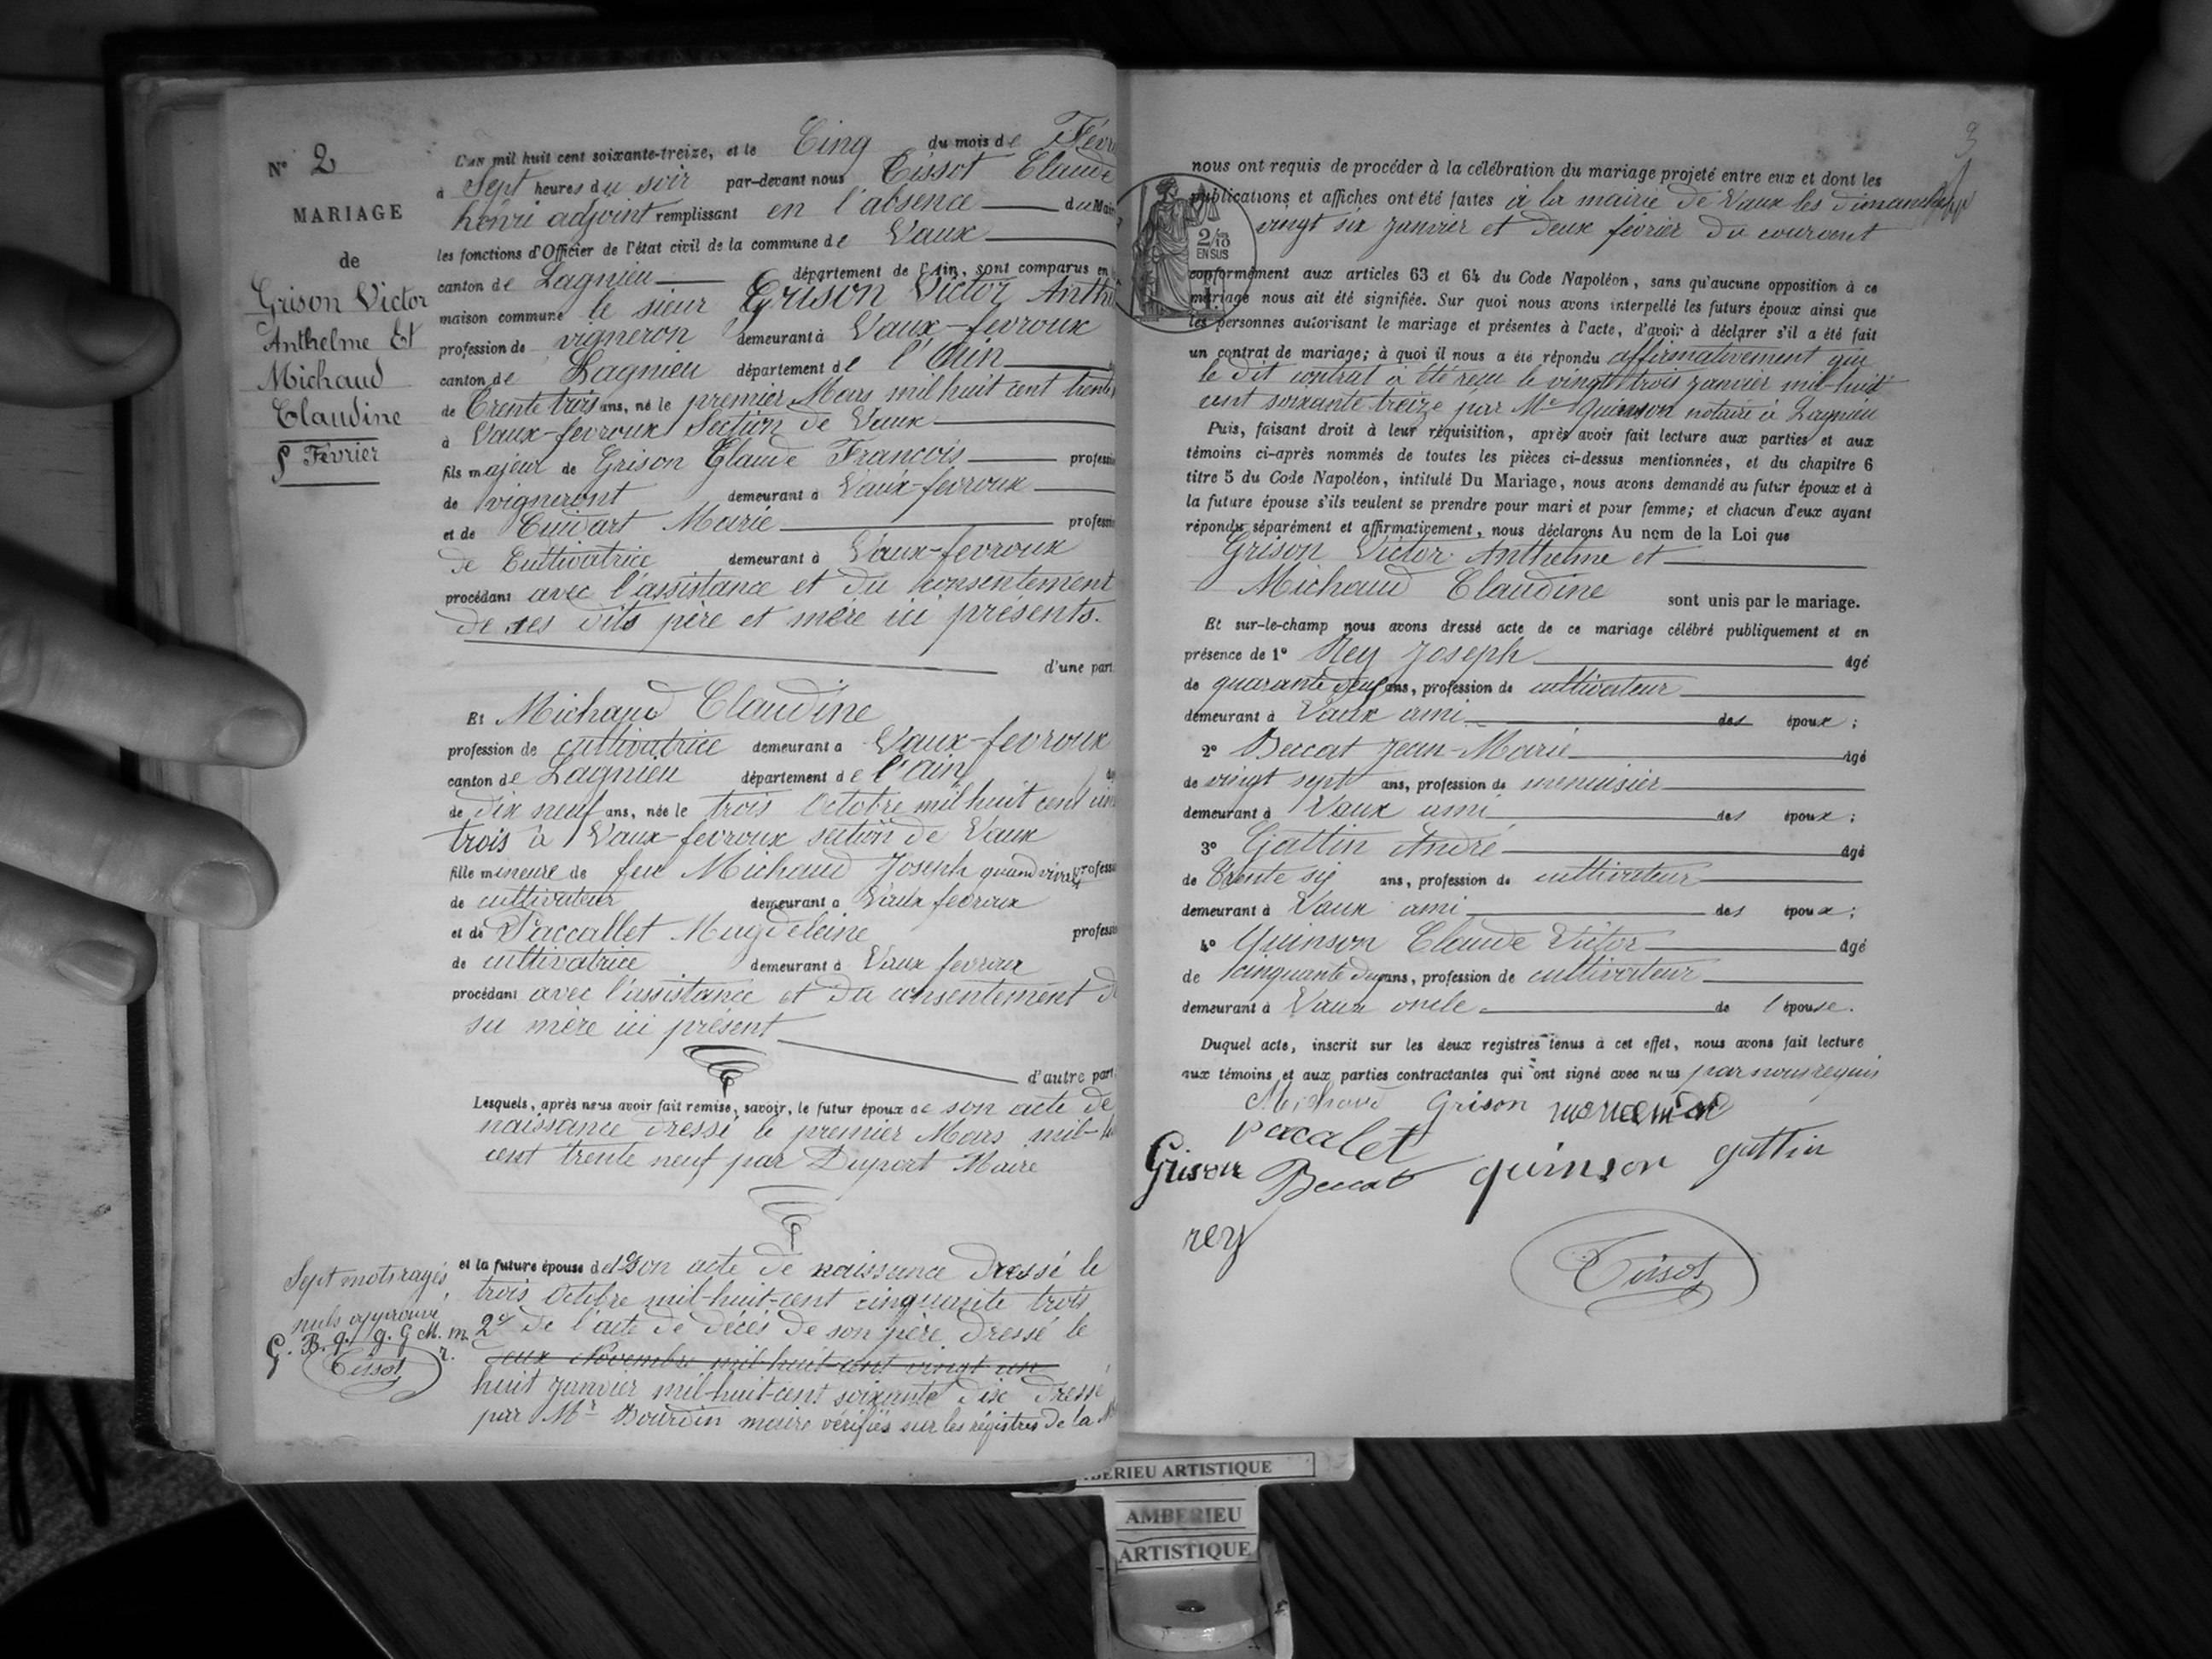 N° 2
MARIAGE
de
Grison Victor
Anthelme Et
Michaud
Claudine
5 Février
L'an mil huit cent soixante-treize, et le Cinq du mois de Févr
à Sept heures du soir par-devant nous Tissot Claude
henri adjoint remplissant en l'absence du Maire
les fonctions d'Officier de l'état civil de la commune de Vaux
canton de Lagnieu département de l'Ain, sont comparus en
maison commune le sieur Grison Victor Anth
profession de vigneron demeurant à Vaux-fevroux
canton de Lagnieu département de l'Ain
de Trente trois ans, né le premier Mars mil huit cent trente
à Vaux-fevroux Section de Vaux
fils majeur de Grison Claude François profession
de vigneront demeurant à Vaux-fevroux
et de Cuidart Marie profession
de Cultivatrice demeurant à Vaux-fevroux
procédant avec l'assistance et du consentement
de ses dits père et mère ici présents.
d'une part
Et Michaud Claudine
profession de cultivatrice demeurant à Vaux-fevroux
canton de Lagnieu département de l'ain
de dix neuf ans, née le trois Octobre mil huit cent cin
trois à Vaux-fevroux section de Vaux
fille mineure de feu Michaud Joseph quand vivait profession
de cultivateur demeurant à Vaux fevroux
et de Paccallet Magdeleine profession
de cultivatrice demeurant à Vaux fevroux
procédant avec l'assistance et du consentement de
sa mère ici présent
d'autre part
Lesquels, après nous avoir fait remise, savoir, le futur époux de son acte de
naissance dressé le premier Mars mil-hu
cent trente neuf par Duport Maire
et la future épouse de 1° Son acte de naissance dressé le
trois Octobre mil-huit-cent cinquante trois
2° de l'acte de décès de son père dressé le
deux Novembre mil-huit-cent vingt un
huit janvier mil-huit-cent soixante dix dressé
par Mr Bourdin maire vérifiés sur les régistres de la M
Sept mots rayés
nuls approuvé
G. B. q. g. G M. m.
r.
Tissot
3
nous ont requis de procéder à la célébration du mariage projeté entre eux et dont les
publications et affiches ont été faites à la mairie de Vaux les dimanches
vingt six janvier et deux février du courent
2/10
EN SUS
conformément aux articles 63 et 64 du Code Napoléon, sans qu'aucune opposition à ce
mariage nous ait été signifiée. Sur quoi nous avons interpellé les futurs époux ainsi que
les personnes autorisant le mariage et présentes à l'acte, d'avoir à déclarer s'il a été fait
un contrat de mariage; à quoi il nous a été répondu affirmativement que
le dit contrat à été recu le vingt trois janvier mil-huit
cent soixante treize par Me Quinson notaire à Lagnieu
Puis, faisant droit à leur réquisition, après avoir fait lecture aux parties et aux
témoins ci-après nommés de toutes les pièces ci-dessus mentionnées, et du chapitre 6
titre 5 du Code Napoléon, intitulé Du Mariage, nous avons demandé au futur époux et à
la future épouse s'ils veulent se prendre pour mari et pour femme; et chacun d'eux ayant
répondu séparément et affirmativement, nous déclarons Au nom de la Loi que
Grison Victor Anthelme et
Michaud Claudine sont unis par le mariage.
Et sur-le-champ nous avons dressé acte de ce mariage célébré publiquement et en
présence de 1° Rey Joseph âgé
de quarante deux ans, profession de cultivateur
demeurant à Vaux ami des époux;
2° Beccat Jean-Marie âgé
de vingt sept ans, profession de menuisier
demeurant à Vaux ami des époux;
3° Gattin André âgé
de Trente six ans, profession de cultivateur
demeurant à Vaux ami des époux;
4° Quinson Claude Victor âgé
de cinquante deux ans, profession de cultivateur
demeurant à Vaux oncle de l'épouse.
Duquel acte, inscrit sur les deux registres tenus à cet effet, nous avons fait lecture
aux témoins et aux parties contractantes qui ont signé avec nous par nous requis
Michaud Grison
pacalet
Grison Beccat quinson gattin
rey
Tissot
AMBERIEU ARTISTIQUE
AMBERIEU
ARTISTIQUE